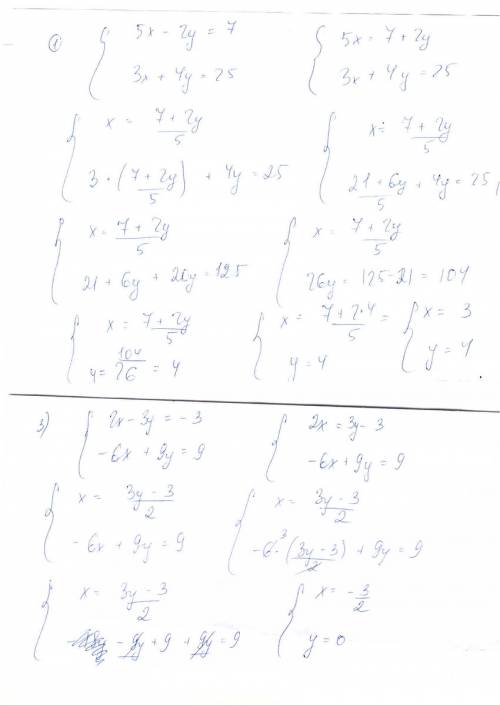 ① { 5x - 2y = 7
3x + 4y = 25
{ 5x = 7 + 2y
3x + 4y = 25
{ x = (7 + 2y)/5
3 · ((7 + 2y)/5) + 4y = 25
{ x = (7 + 2y)/5
(21 + 6y)/5 + 4y = 25
{ x = (7 + 2y)/5
21 + 6y + 20y = 125
{ x = (7 + 2y)/5
26y = 125 - 21 = 104
{ x = (7 + 2y)/5
y = 104/26 = 4
{ x = (7 + 2·4)/5 =
y = 4
{ x = 3
y = 4
3) { 2x - 3y = -3
-6x + 9y = 9
{ 2x = 3y - 3
-6x + 9y = 9
{ x = (3y - 3)/2
-6x + 9y = 9
{ x = (3y - 3)/2
-6·³ ((3y - 3)/2) + 9y = 9
{ x = (3y - 3)/2
-9y + 9 + 9y = 9
{ x = -3/2
y = 0